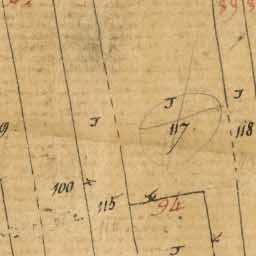 J
J
J
117
118
9
100
115
94
J